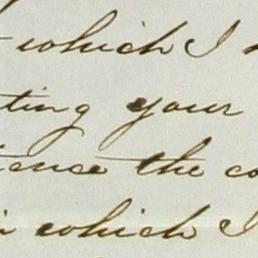 which I
ting your
ience the co
which I